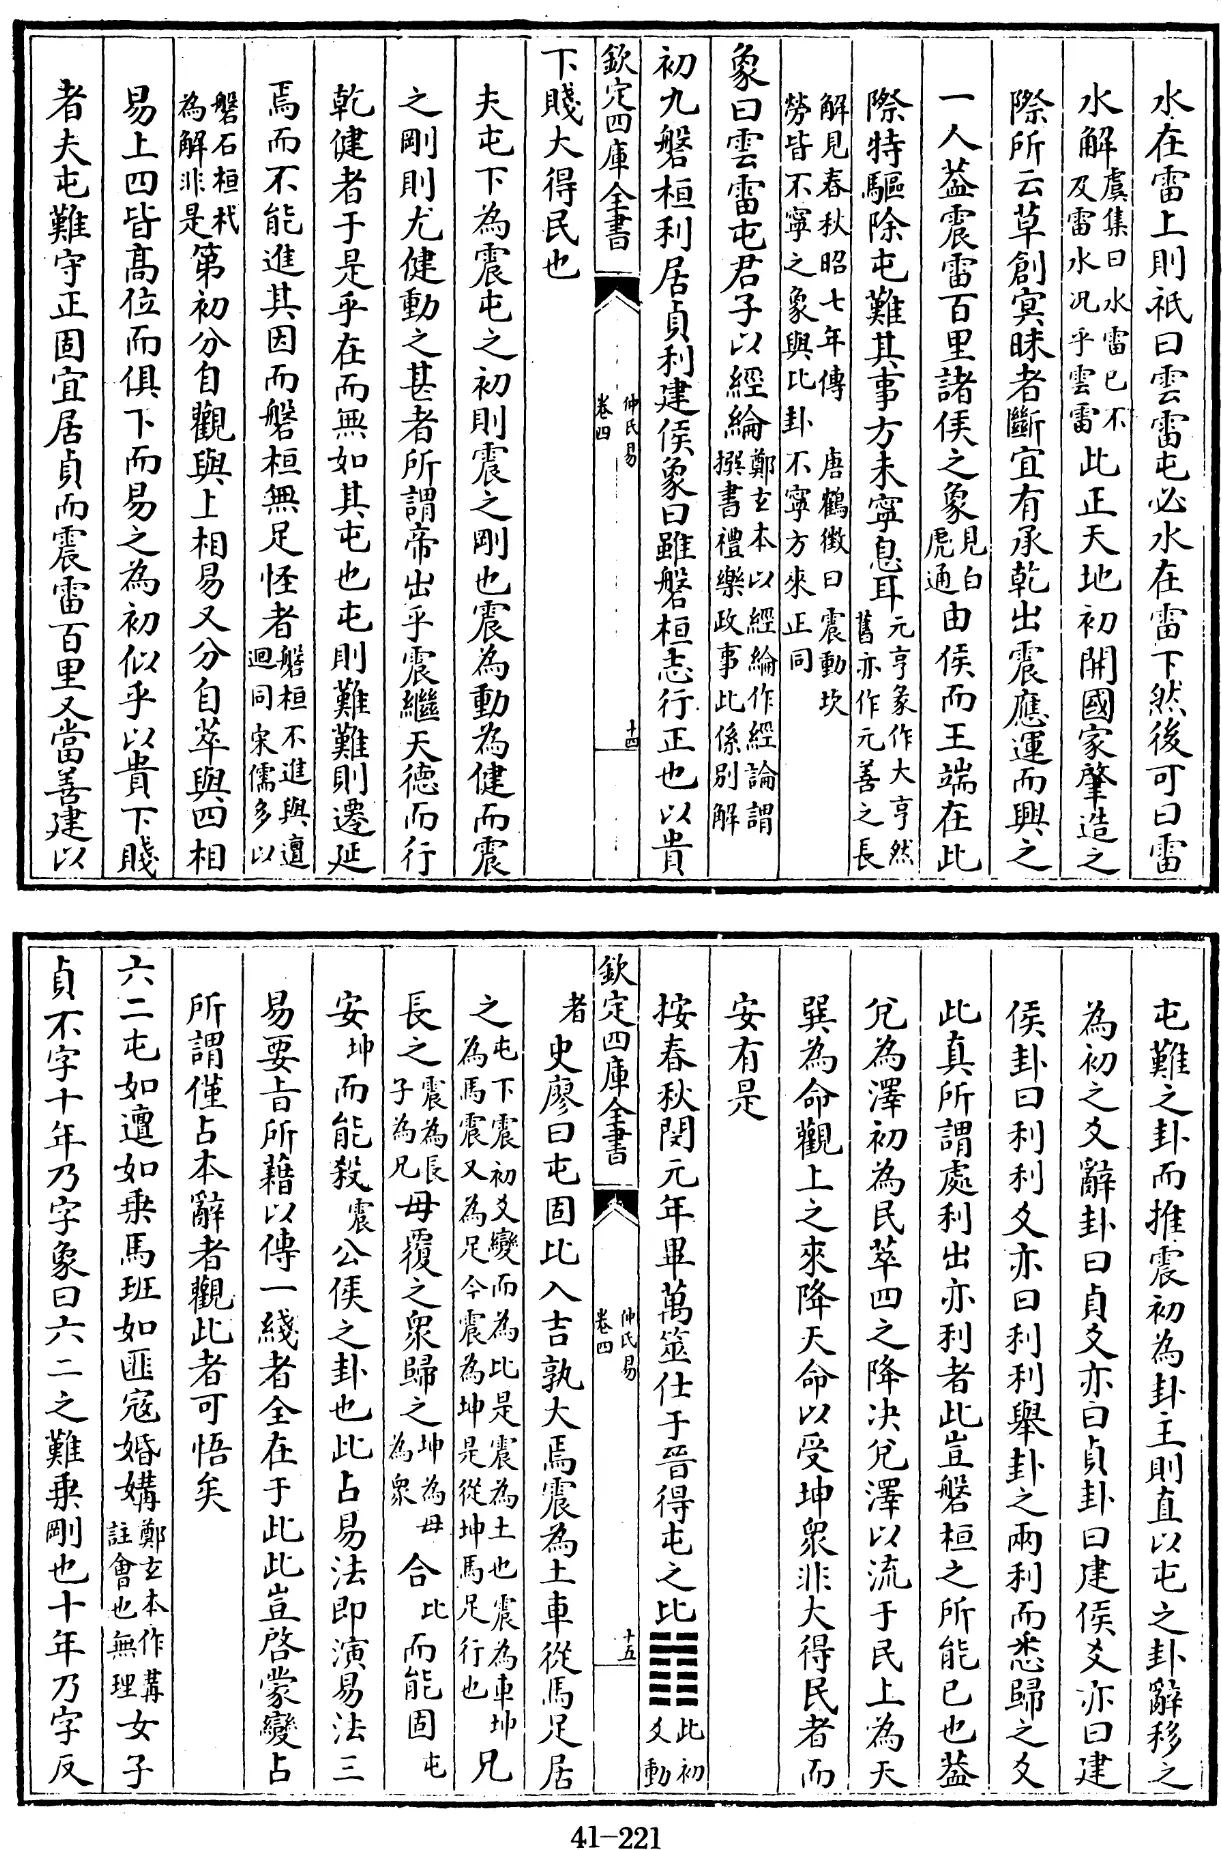 水在雷上則祇曰雲雷屯必水在雷下然後可曰雷
水解虞集曰水雷已不及雷水况乎雲雷此正天地初開國家肇造之
際所云草創㝠昧者斷宜有承乾出震應運而興之
一人葢震雷百里諸侯之象見白虎通由侯而王端在此
際特驅除屯難其事方未寧息耳元亨象作大亨然舊亦作元善之長
解見春秋昭七年傳　唐鶴徴曰震動坎勞皆不寧之象與比卦不寧方來正同
象曰雲雷屯君子以經綸鄭玄本以經綸作經論謂撰書禮樂政事此係别解
初九磐桓利居貞利建侯象曰雖磐桓志行正也以貴
欽定四庫全書
仲氏易
卷四
十四
下賤大得民也
夫屯下為震屯之初則震之剛也震為動為健而震
之剛則尤健動之甚者所謂帝出乎震繼天德而行
乾健者于是乎在而無如其屯也屯則難難則遷延
焉而不能進其因而磐桓無足怪者磐桓不進與邅迴同宋儒多以
磐石桓杙為解非是第初分自觀與上相易又分自萃與四相
易上四皆髙位而俱下而易之為初似乎以貴下賤
者夫屯難守正固宜居貞而震雷百里又當善建以
屯難之卦而推震初為卦主則直以屯之卦辭移之
為初之爻辭卦曰貞爻亦曰貞卦曰建侯爻亦曰建
侯卦曰利利爻亦曰利利舉卦之兩利而悉歸之爻
此真所謂處利出亦利者此豈磐桓之所能已也葢
兌為澤初為民萃四之降决兌澤以流于民上為天
巽為命觀上之來降天命以受坤衆非大得民者而
安有是
按春秋閔元年畢萬筮仕于晉得屯之比䷂䷇此初爻動
欽定四庫全書
仲氏易
卷四
十五
者史廖曰屯固比入吉孰大焉震為土車從馬足居
之屯下震初爻變而為比是震為土也震為車坤為馬震又為足今震為坤是從坤馬足行也兄
長之震為長子為兄母覆之衆歸之坤為母為衆合比而能固屯
安坤而能殺震公侯之卦也此占易法即演易法三
易要㫖所藉以傳一綫者全在于此此豈啓蒙變占
所謂僅占本辭者觀此者可悟矣
六二屯如邅如乗馬班如匪寇婚媾鄭玄本作冓註會也無理女子
貞不字十年乃字象曰六二之難乗剛也十年乃字反
41-221